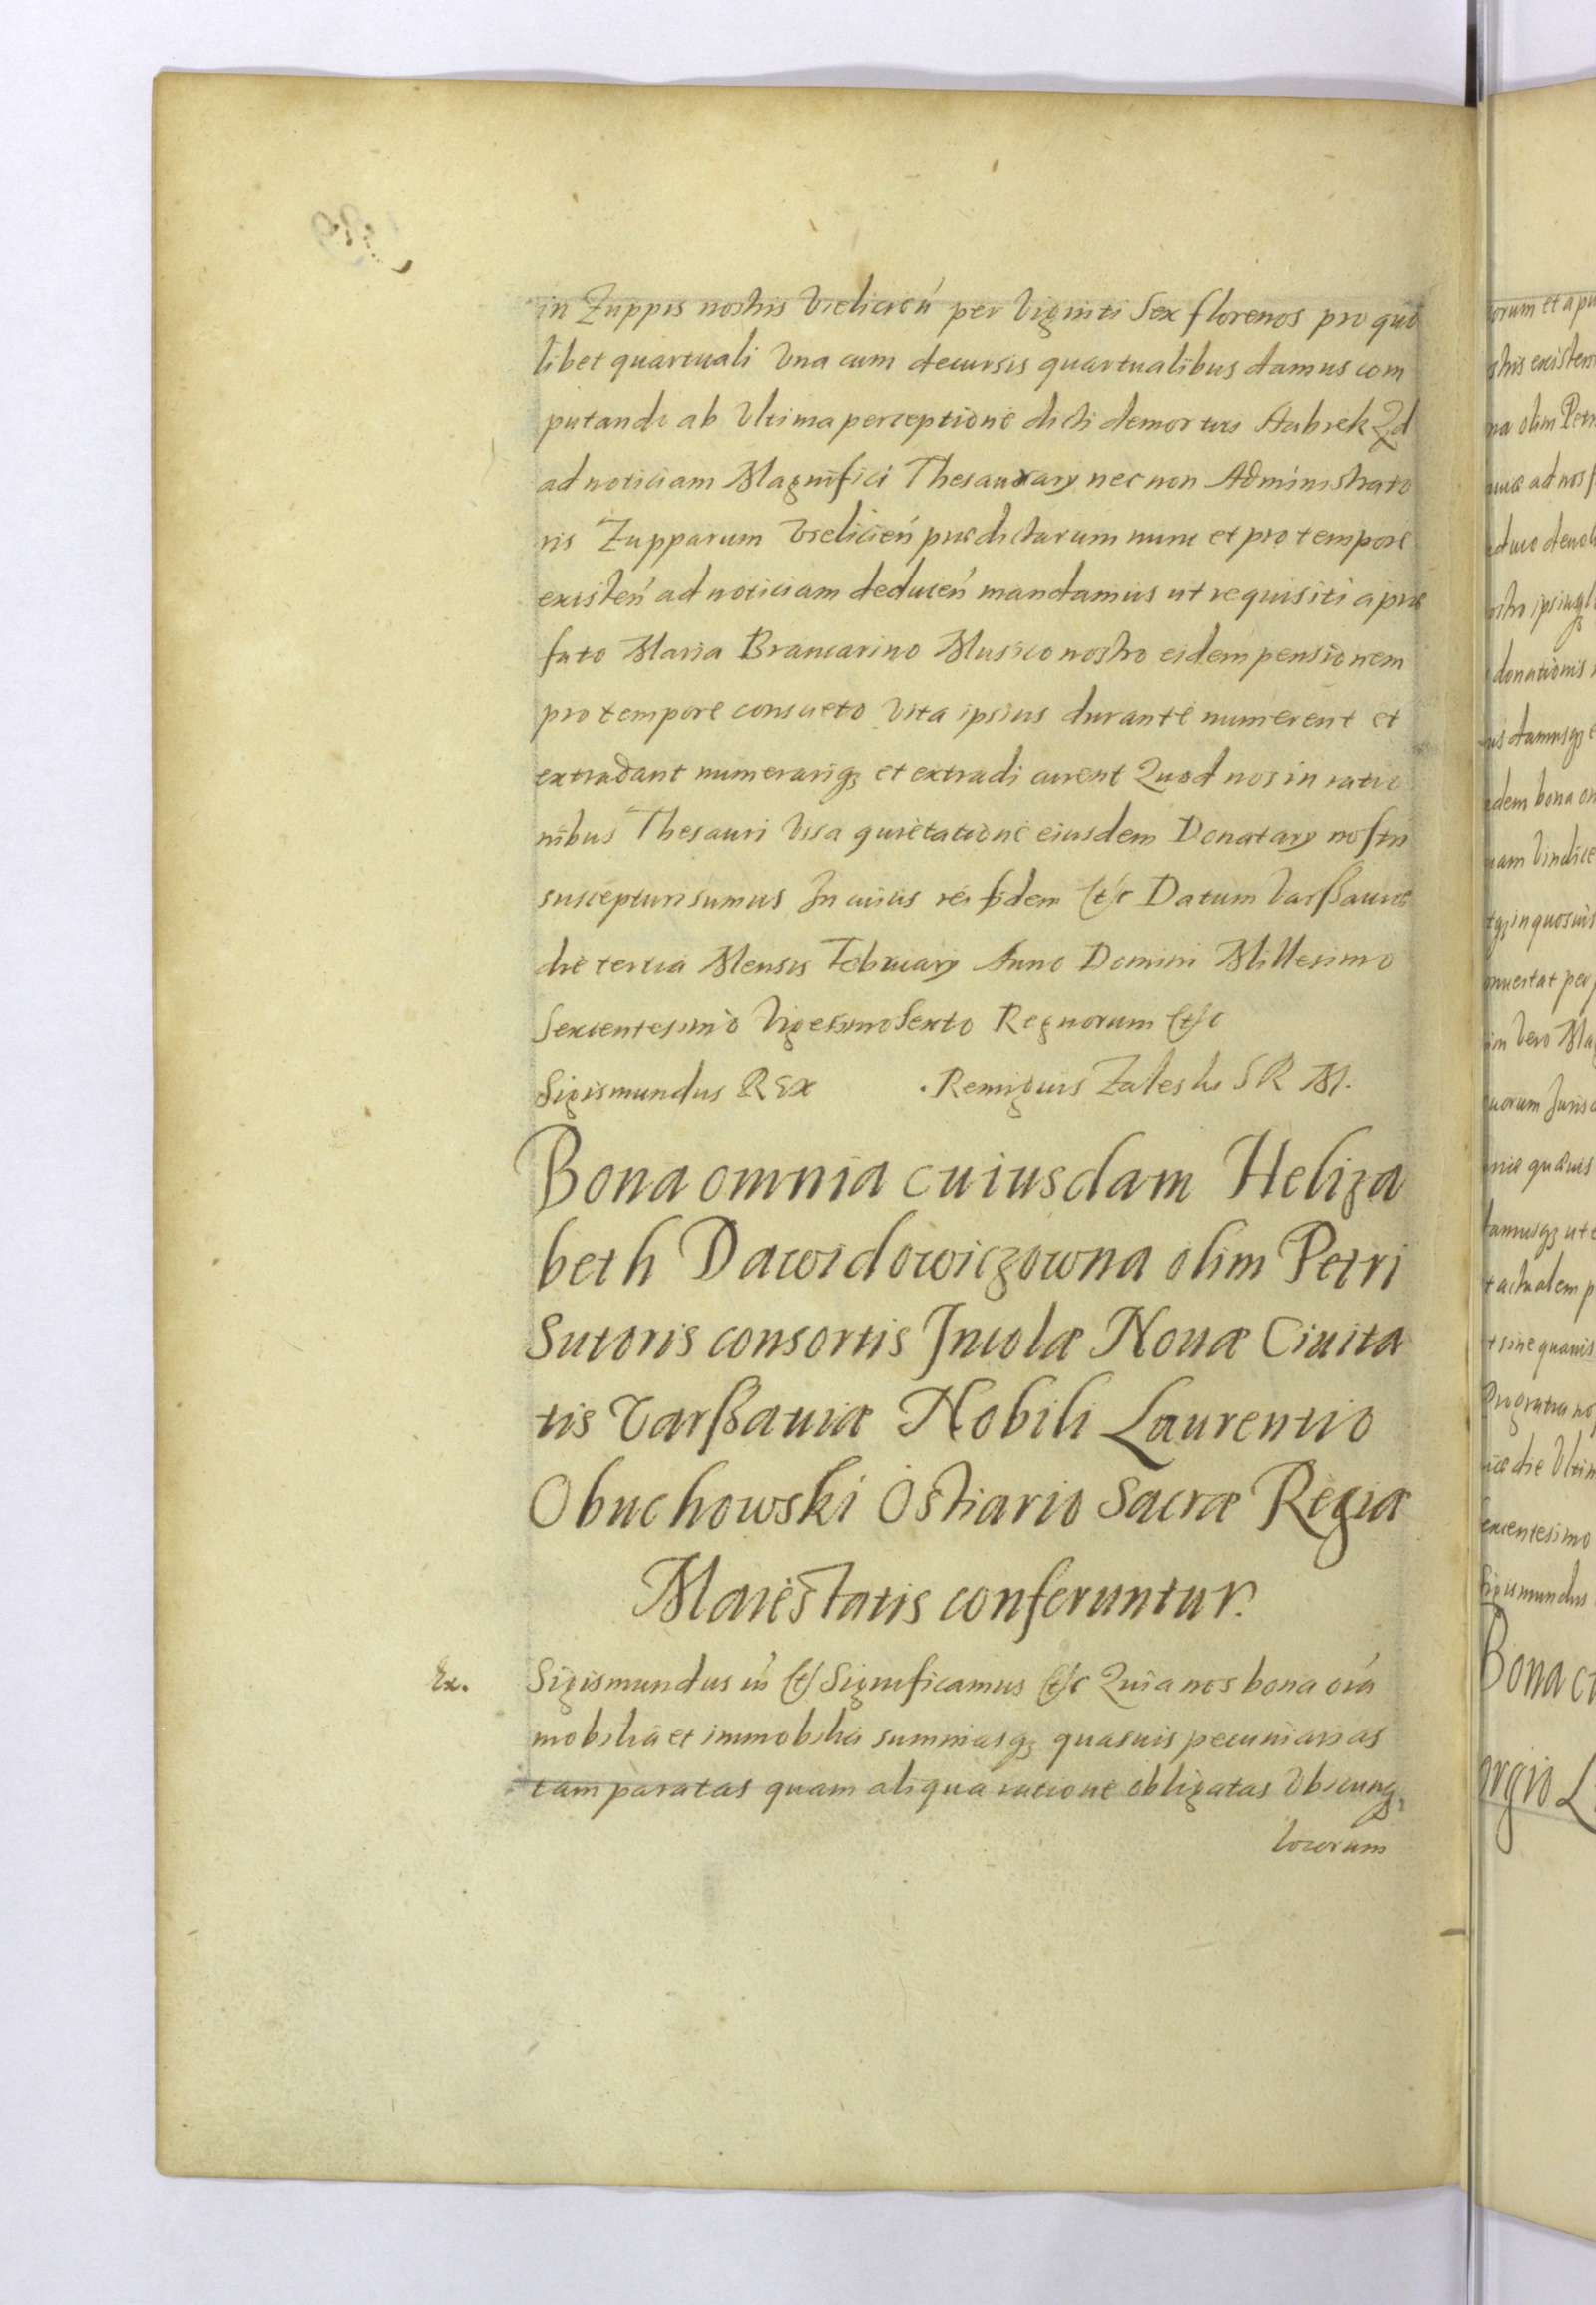 in Zuppis nostris Vielicień per Viginti Sex florenos pro quo
libet quartuali Vna cum decursis quartualibus damus com
putando ab Vltima perceptione dicti demortui Aabrek Qd
ad noticiam Magnifici Thesaurary nec non Administrato
ris Zupparum Vielicień prædictarum nunc et pro tempore
existeń ad noticiam deduceń mandamus ut requisiti a præ
fato Maria Brancarino Musico nostro eidem pensionem
pro tempore consueto Vita ipsius durante numerent et
extradant numerariq; et extradi curent Quod nos in ratio
nibus Thesauri Visa quietatione eiusdem Donatary nostri
suscepturi sumus In cuius rei fidem (et)c Datum Varßauiæ
die tertia Mensis February Anno Domini Millesimo
Sexcentesimo Vigesimo Sexto Regnorum (et)c
Sigismundus REx .Remigius Zaleski S R M.
Bona omnia cuiusdam Heliza
beth Dawidowiczowna olim Petri
Sutoris consortis Incolæ Nouæ Ciuita
tis Varßauiæ Nobili Laurentio
Obuchowski Ostiario Sacræ Regiæ
Maiestatis conferuntur.
Ex. Sigismundus (et) Significamus (et)c Quia nos bona oia
mobilia et immobilia summasq; quasuis pecuniarias
tam paratas quam aliqua ratione obligatas Vbicunq;
locorum